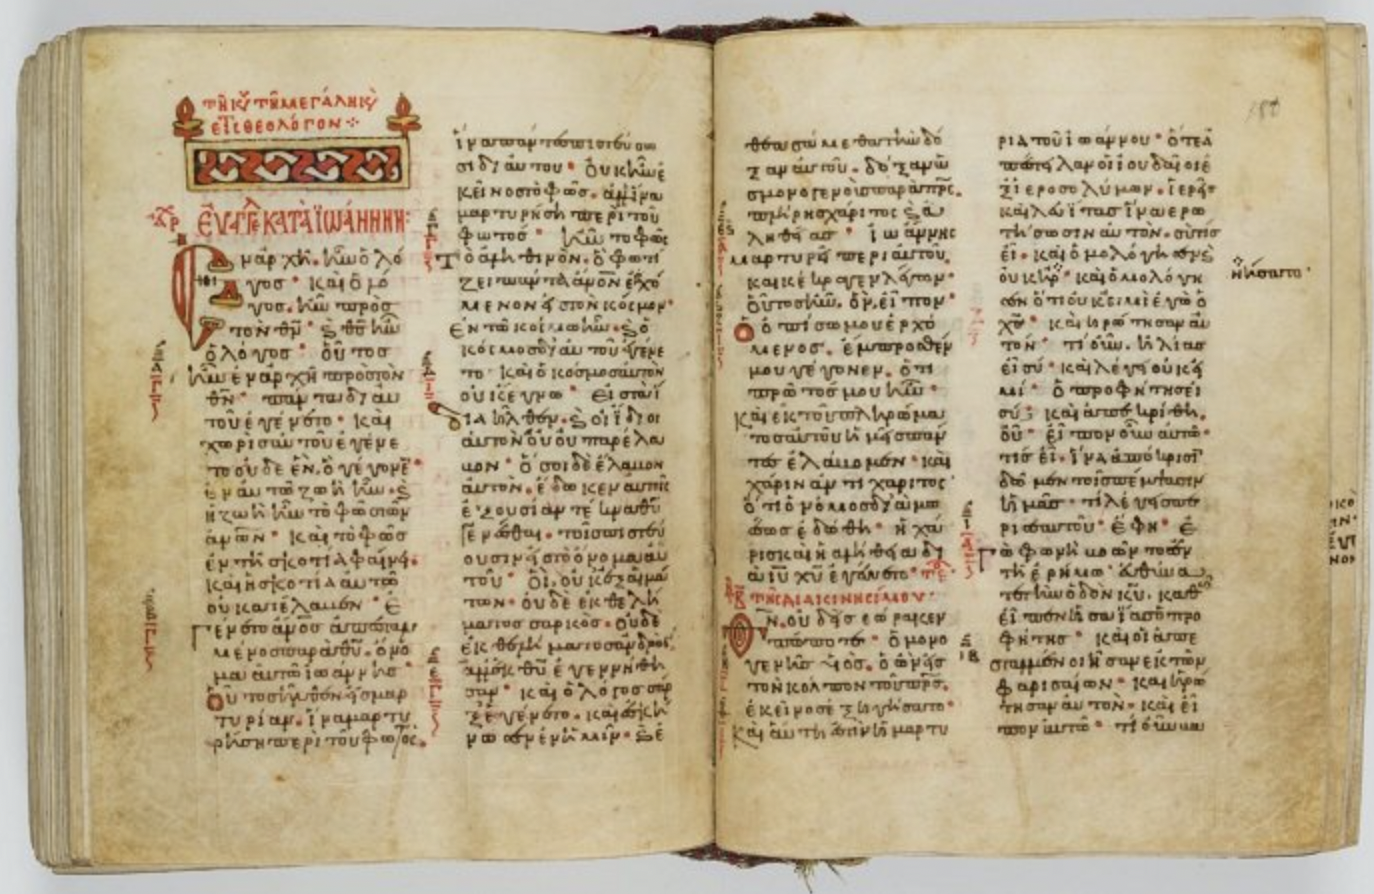 ΕΥΑΓΓΕ ΚΑΤΑ ΪΩΑΝΝΗΝ:
Ἐν ἀρχῆ ἦν ὁ λό
γος · καὶ ὁ λό
γος ἦν πρὸς
τὸν θν · θς ἦν
ὁ λόγος · οὗτος
ἦν ἐν ἀρχῆ πρὸς τὸν
θν · πάντα δι αυ
τοῦ ἐγένετο · καὶ
χωρὶς αὐτοῦ ἐγένε
το οὐδὲ ἕν. ὃ γέγονε
ἐν αὐτῶ ζωὴ ἦν
ἡ ζωὴ ἦν τὸ φῶς τῶν
ανων · καὶ τὸ φῶς
ἐν τῆ σκοτία φαίνει
καὶ ἡ σκοτία αὐτὸ
οὐ κατέλαβεν · ἐ
γένετο ανος ἀπεσταλ
μένος παρὰ θυ. ὄνο
μα αὐτῶ ἰωάννης
Οὗτος ἦλθεν εἰς μαρ
τυρίαν. ἵνα μαρτυ
ρήση περὶ τοῦ φωτός
ἵνα πάντες πιστεύσω
σι δι αὐτοῦ · οὐκ ἦν ἐ
κεῖνος τὸ φῶς. ἀλλ ἵνα
μαρτυρήση περὶ τοῦ
φωτός · ἦν τὸ φῶς
τὸ ἀληθινόν. ὃ φωτί
ζει πάντα ανον ἐρχό
μενον εἰς τὸν κόσμον
Ἐν τῶ κόσμω ἦν. ὁ
κόσμος δι αὐτοῦ ἐγένε
το · καὶ ὁ κόσμος αὐτὸν
οὐκ ἔγνω · Εἰς τὰ ἴ
δια ἦλθεν. οἱ ἴδιοι
αὐτὸν οὐ παρέλα
βον · ὅσοι δὲ ἔλαβον
αὐτόν. ἔδωκεν αὐτοῖς
ἐξουσίαν τέκνα θυ
γενέσθαι · τοῖς πιστεύ
ουσιν εἰς τὸ ὄνομα αὐ
τοῦ · οἳ οὐκ ἐξ αἱμά
των. οὐδὲ ἐκ θελή
ματος σαρκός. οὐδὲ
ἐκ θελήματος ἀνδρός.
ἀλλ ἐκ θυ ἐγεννήθη
σαν · καὶ ὁ λόγος σὰρ
ξ ἐγένετο. καὶ ἐσκή
νωσεν ἐν ἡμῖν ἐ
θεασάμεθα τὴν δό
ξαν αὐτοῦ. δόξαν ὡ
ς μονογενοῦς παρὰ πρς.
πλήρης χάριτος ἀ
ληθείας · ἰωάννης
μαρτυρεῖ περὶ αὐτοῦ.
καὶ κέκραγεν λέγων
οὗτος ἦν. ὃν εἶπον
ὁ ὀπίσω μου ἐρχό
μενος. ἔμπροσθέν
μου γέγονεν. ὅτι
πρῶτός μου ἦν
Καὶ ἐκ τοῦ πληρώμα
τος αὐτοῦ ἡμεῖς πάν
τες ἐλάβομεν · καὶ
χάριν ἀντὶ χάριτος
ὅτι ὁ νόμος διὰ μω
σέως ἐδόθη · ἡ χά
ρις καὶ ἡ ἀλήθεια δι
α ιυ χυ ἐγένετο
ΤΗΣ ΔΙΑΚΙΝΗΣΙΜΟΥ
Θν οὐδεὶς ἑώρακεν
πώποτε · ὁ μονο
γενὴς υἱός. ὁ ὢν εἰς
τὸν κόλπον τοῦ πρς.
ἐκεῖνος ἐξηγήσατο
Καὶ αὕτη ἐστὶν ἡ μαρτυ
ρία τοῦ ἰωάννου · ὅτε ἀ
πέστειλαν οἱ ἰουδαῖοι ἐ
ξ ἱεροσολύμων. ἱερεῖς
καὶ λευίτας ἵνα ἐρω
τήσωσιν αὐτόν. σὺ τίς
εἶ. καὶ ὡμολόγησεν
οὐκ · καὶ ὡμολόγη
σεν ὅτι οὐκ εἰμὶ ἐγὼ ὁ
χς · καὶ ἠρώτησαν αὐ
τόν · τί οὖν. ἠλίας
εἶ σύ · καὶ λέγει οὐκ εἰ
μί · ὁ προφήτης εἶ
σύ · καὶ ἀπεκρίθη.
οὔ · εἶπον οὖν αὐτῶ
τίς εἶ. ἵνα ἀπόκρισι
δῶμεν τοῖς πέμψασιν
ἡμᾶς · τί λέγεις πε
ρὶ σεαυτοῦ · ἔφη · ἐ
γὼ φωνὴ βοῶντος ἐν
τῆ ἐρήμω · εὐθύνα
τε τὴν ὁδὸν κυ. καθ
εἶπεν ἡσαΐας ὁ προ
φήτης · καὶ οἱ ἀπε
σταλμένοι ἦσαν ἐκ τῶν
φαρισαίων · καὶ ἠρώ
τησαν αὐτόν · καὶ εἶ
πον αὐτῶ · τί οὖν βα